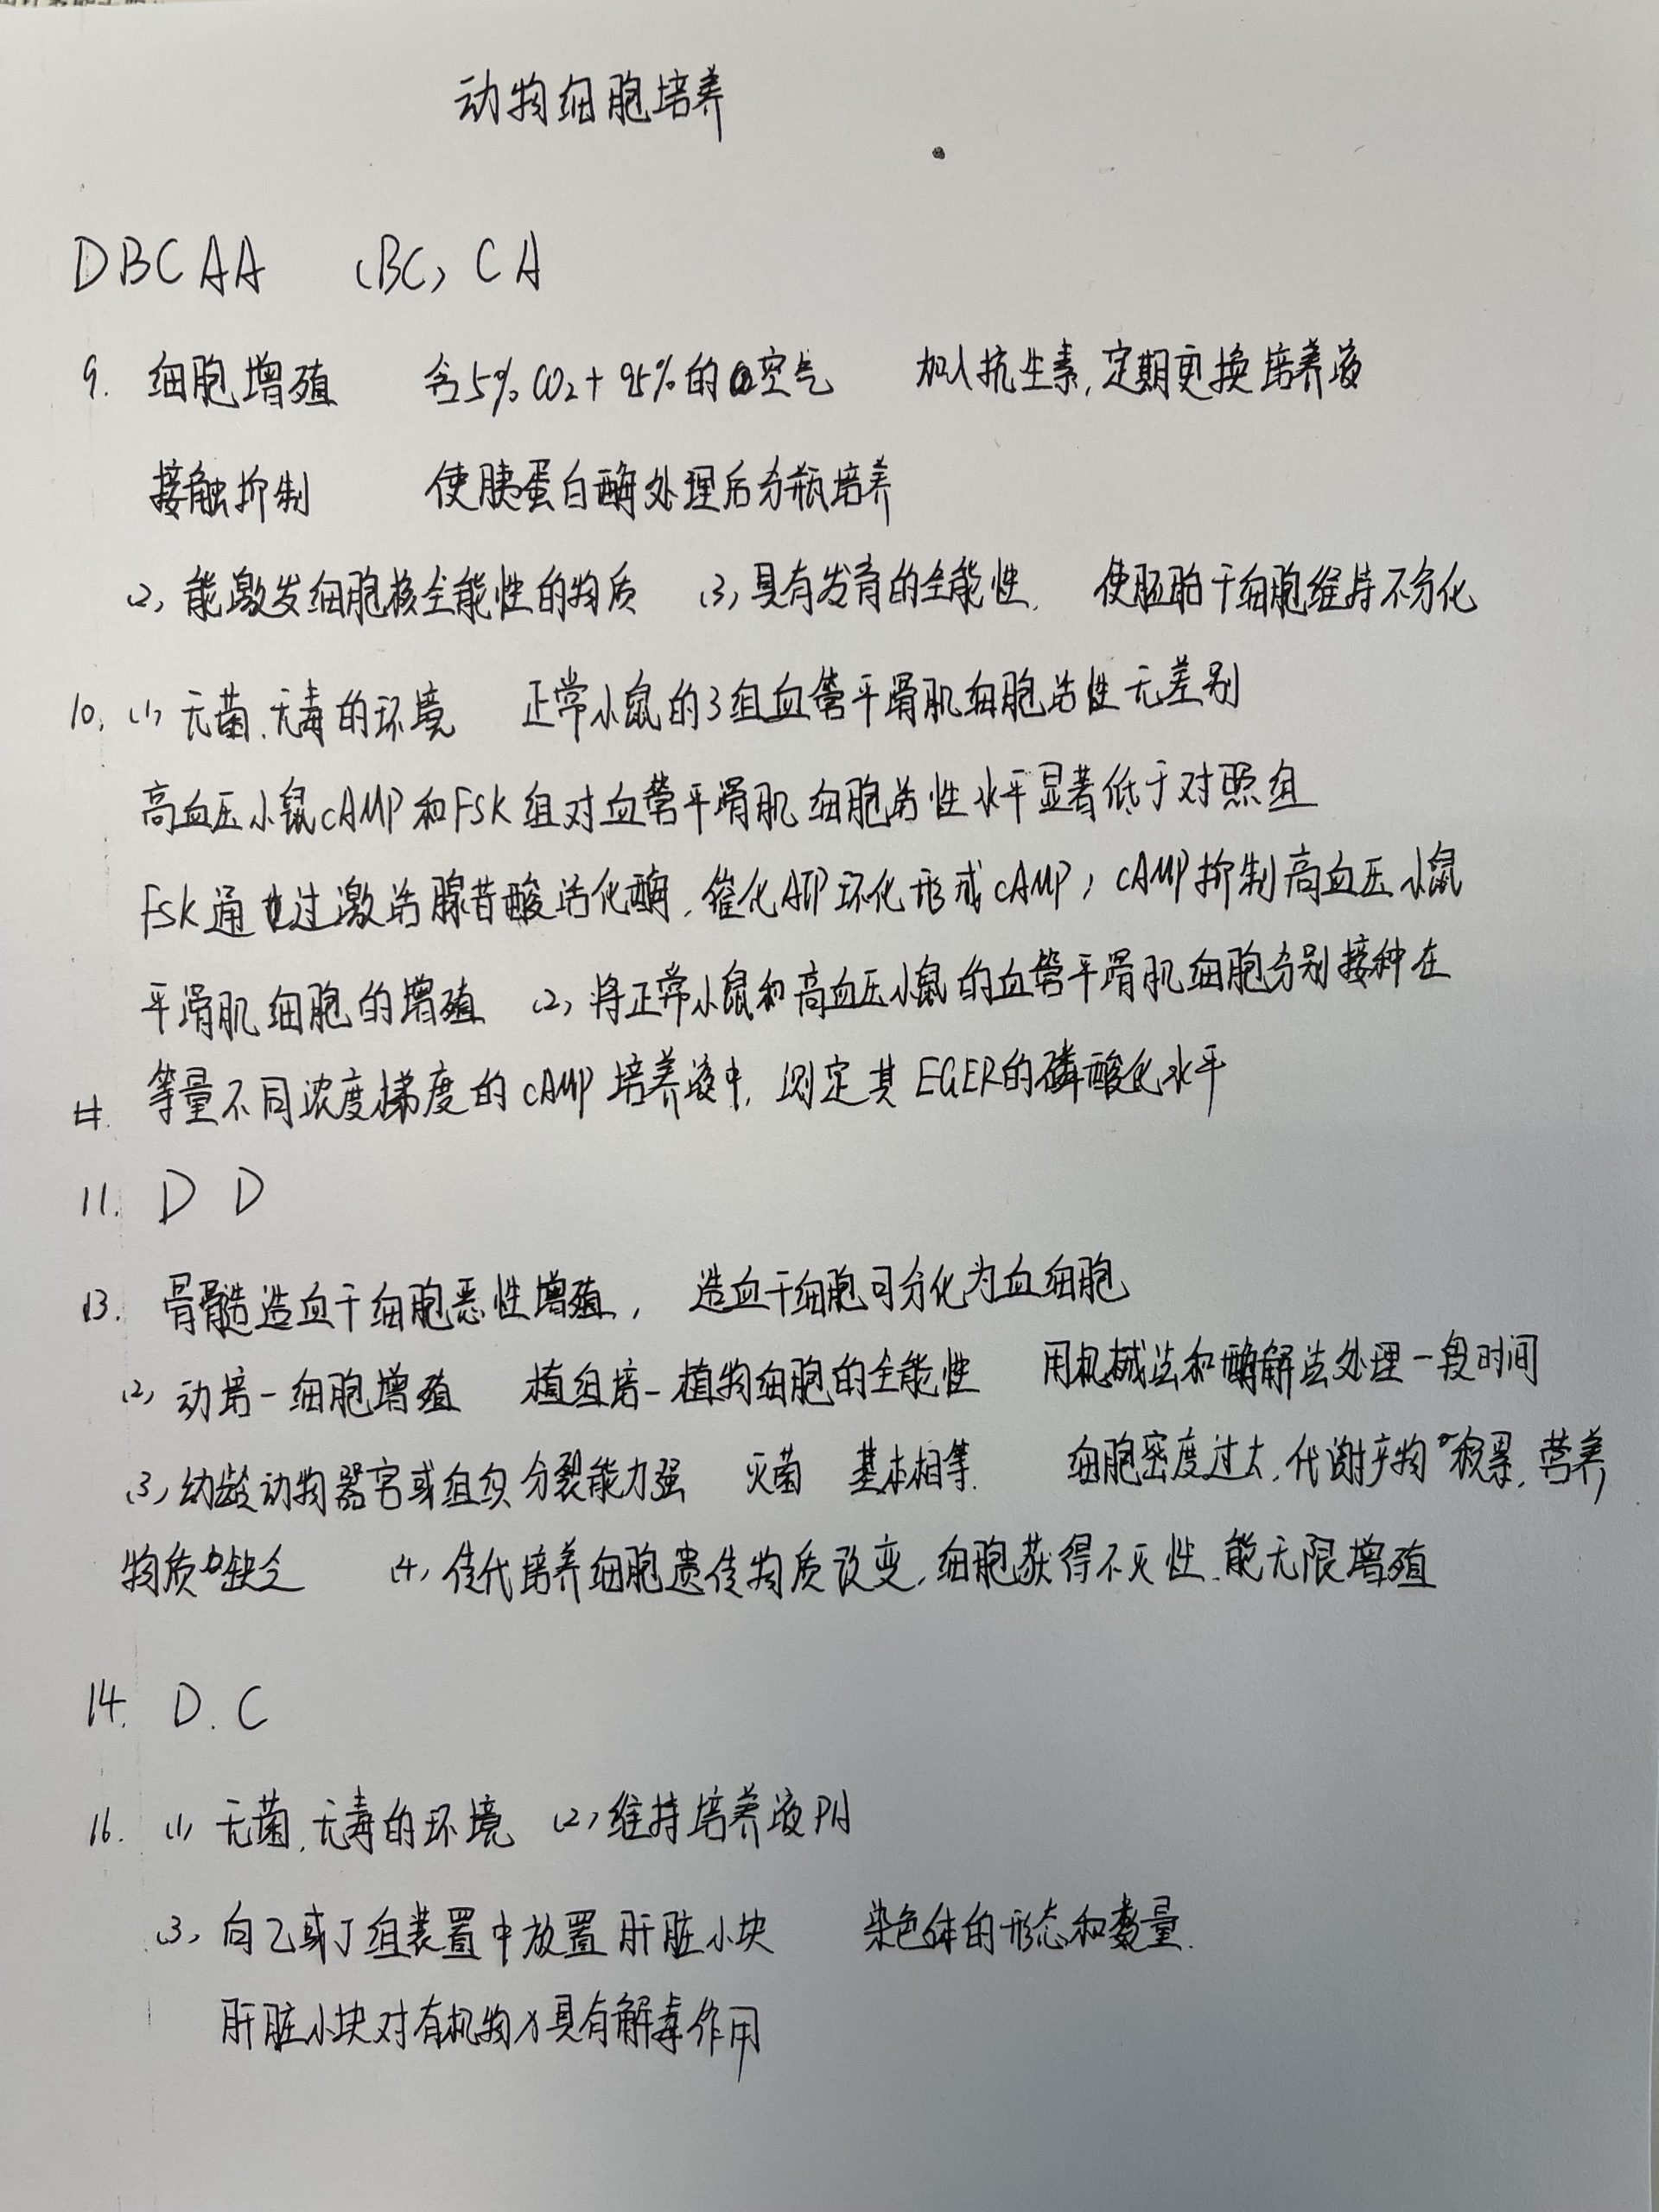 动物细胞培养
DBCAA (BC) CA
9. 细胞增殖 含5%CO₂+95%的空气 加入抗生素,定期更换培养液
接触抑制 使胰蛋白酶处理后分瓶培养
(2) 能激发细胞核全能性的物质 (3) 具有发育的全能性. 使胚胎干细胞维持不分化
10. (1) 无菌、无毒的环境 正常小鼠的3组血管平滑肌细胞活性无差别
高血压小鼠cAMP和FSK组对血管平滑肌细胞活性水平显著低于对照组
FSK通过激活腺苷酸活化酶,催化ATP环化形成cAMP,cAMP抑制高血压小鼠
平滑肌细胞的增殖 (2) 将正常小鼠和高血压小鼠的血管平滑肌细胞分别接种在
等量不同浓度梯度的cAMP培养液中,测定其EGER的磷酸化水平
11. D D
13. 骨髓造血干细胞恶性增殖, 造血干细胞可分化为血细胞
(2) 动培-细胞增殖 植组培-植物细胞的全能性 用机械法和酶解法处理一段时间
(3) 幼龄动物器官或组织分裂能力强 灭菌 基本相等. 细胞密度过大,代谢产物积累,营养
物质缺乏 (4) 传代培养细胞遗传物质改变,细胞获得不灭性,能无限增殖
14. D. C
16. (1) 无菌、无毒的环境 (2) 维持培养液PH
(3) 向乙或丁组装置中放置肝脏小块 染色体的形态和数量.
肝脏小块对有机物X具有解毒作用